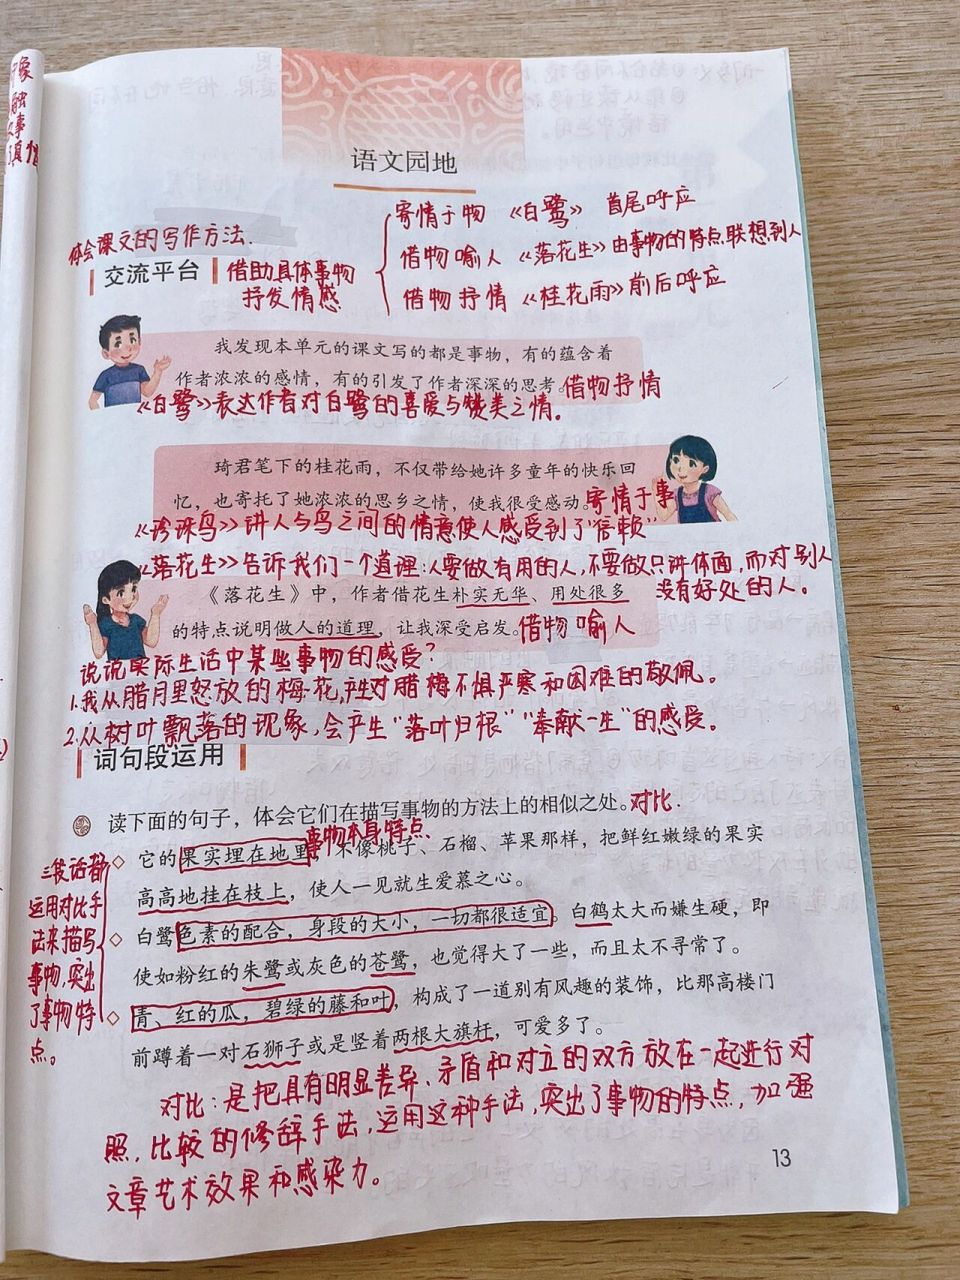 象
触
事
真情
语文园地
体会课文的写作方法.
交流平台
借助具体事物
抒发情感
寄情于物 《白鹭》 首尾呼应
借物喻人 《落花生》由事物的特点联想到人
借物抒情 《桂花雨》前后呼应
我发现本单元的课文写的都是事物，有的蕴含着
作者浓浓的感情，有的引发了作者深深的思考。借物抒情
《白鹭》表达作者对白鹭的喜爱与赞美之情。
琦君笔下的桂花雨，不仅带给她许多童年的快乐回
忆，也寄托了她浓浓的思乡之情，使我很受感动。寄情于事
《珍珠鸟》讲人与鸟之间的情意使人感受到了“信赖”
《落花生》告诉我们一个道理:人要做有用的人,不要做只讲体面,而对别人
没有好处的人。
《落花生》中，作者借花生朴实无华、用处很多
的特点说明做人的道理，让我深受启发。借物喻人
说说实际生活中某些事物的感受?
1.我从腊月里怒放的梅花,产生对腊梅不惧严寒和困难的敬佩。
2.从树叶飘落的现象,会产生“落叶归根”“奉献一生”的感受。
词句段运用
读下面的句子，体会它们在描写事物的方法上的相似之处。对比.
事物本身特点
它的果实埋在地里，不像桃子、石榴、苹果那样，把鲜红嫩绿的果实
高高地挂在枝上，使人一见就生爱慕之心。
白鹭色素的配合，身段的大小，一切都很适宜。白鹤太大而嫌生硬，即
使如粉红的朱鹭或灰色的苍鹭，也觉得大了一些，而且太不寻常了。
青、红的瓜，碧绿的藤和叶，构成了一道别有风趣的装饰，比那高楼门
前蹲着一对石狮子或是竖着两根大旗杆，可爱多了。
三段话都
运用对比手
法来描写
事物,突出
了事物特
点。
对比:是把具有明显差异、矛盾和对立的双方放在一起进行对
照,比较的修辞手法,运用这种手法,突出了事物的特点,加强
文章艺术效果和感染力。
13